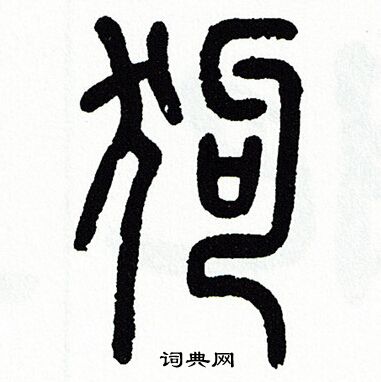 狗
词典网